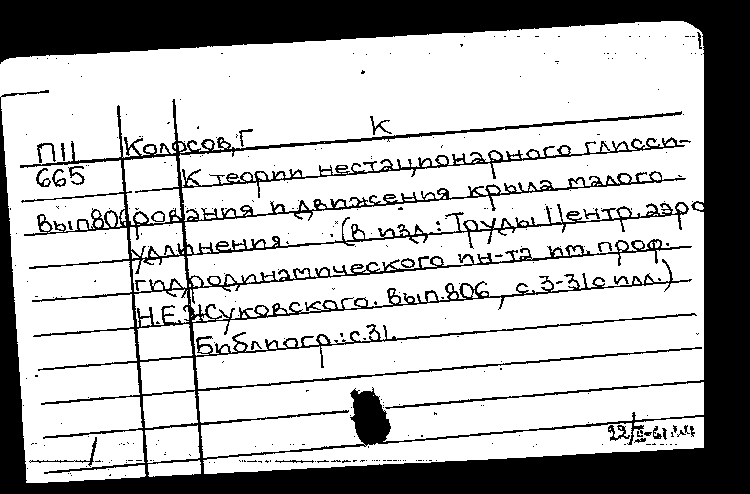 К
П11 Колосов, Г
665 К теории нестационарного глисси-
Вып.806 рования и движения крыла малого
удлинения. : (В изд.: Труды Центр. аэро
гидродинамического ин-та им. проф.
Н.Е.Жуковского. Вып.806, с.3-31 с илл.)
Библиогр.: с.31.